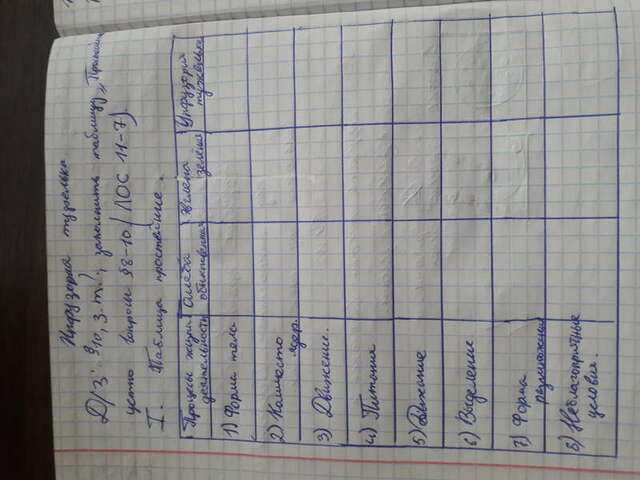 Инфузория туфелька
Д/з: §10, з.т., заполнить таблицу „Преиму
устно вопросы §8-10/ЛОС 11-7).
I. Таблица простейшие.
Процесы жизнедеятельность
Амёба обыкновенная
Эвглена зелёная
Инфузория туфелька
1) Форма тела
2) Количество ядер.
3) Движение.
4) Питание
5) Дыхание
6) Выделение
7) Форма размножения
8) Неблагоприятные условия.